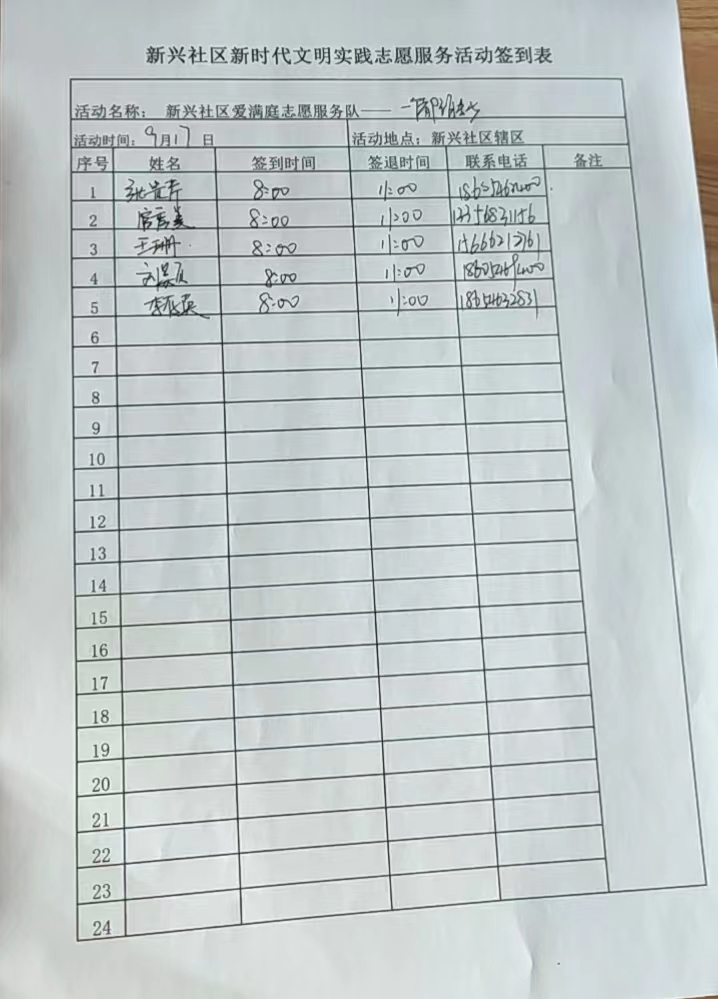 新兴社区新时代文明实践志愿服务活动签到表
活动名称： 新兴社区爱满庭志愿服务队——
活动时间：9月17日 活动地点：新兴社区辖区
序号 姓名 签到时间 签退时间 联系电话 备注
1 8:00 11:00
2 8:00 11:00 13356831156
3 王珊 8:00 11:00 15666212761
4 8:00 11:00
5 8:00 11:00 18654632831
6
7
8
9
10
11
12
13
14
15
16
17
18
19
20
21
22
23
24